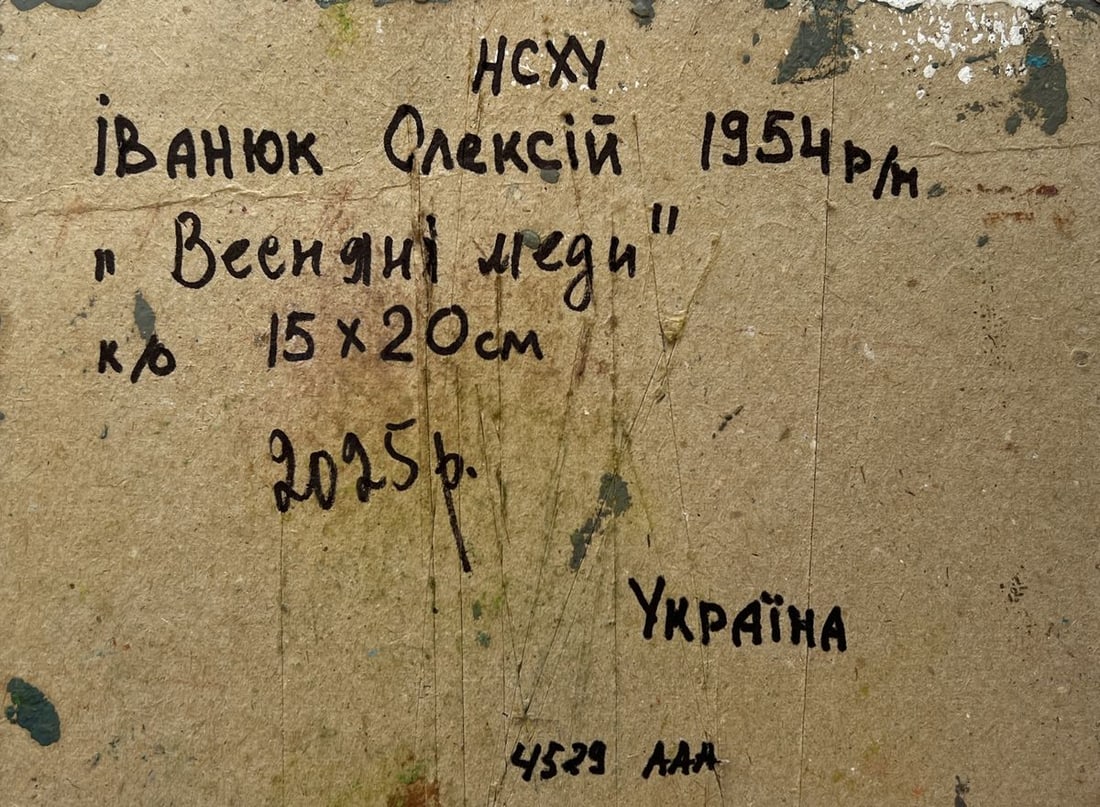 НСХУ
Іванюк Олексій 1954 р/н
"Весняні меди"
к/о 15x20см
2025р.
Україна
4529 ААА